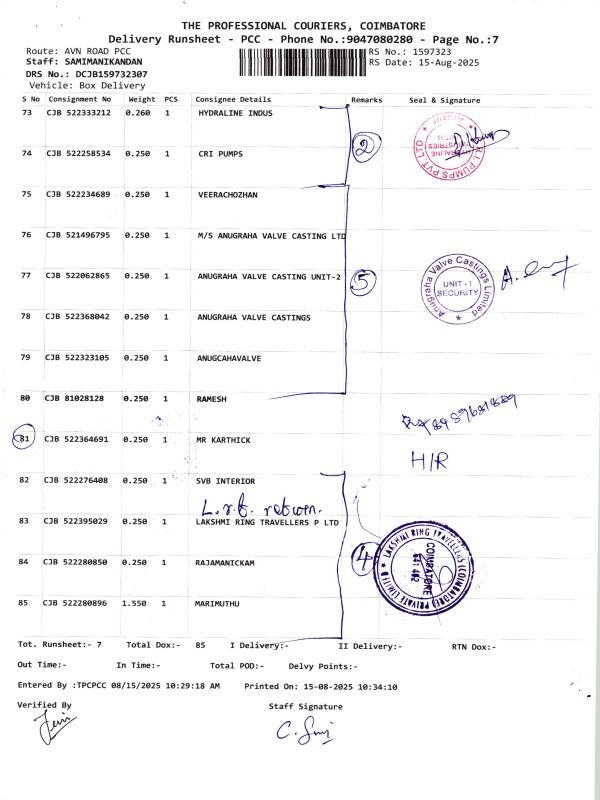 THE PROFESSIONAL COURIERS, COIMBATORE
Delivery Runsheet - PCC - Phone No.:9047080280 - Page No.:7
Route: AVN ROAD PCC RS No.: 1597323
Staff: SAMIMANIKANDAN RS Date: 15-Aug-2025
DRS No.: DCJB159732307
Vehicle: Box Delivery
S No Consignment No Weight PCS Consignee Details Remarks Seal & Signature
73 CJB 522333212 0.260 1 HYDRALINE INDUS
2
74 CJB 522258534 0.250 1 CRI PUMPS
R.I. PUMPS PVT LTD
75 CJB 522234689 0.250 1 VEERACHOZHAN
76 CJB 521496795 0.250 1 M/S ANUGRAHA VALVE CASTING LTD
77 CJB 522062865 0.250 1 ANUGRAHA VALVE CASTING UNIT-2 5
Anugraha Valve Castings Limited
UNIT - I
SECURITY
78 CJB 522368042 0.250 1 ANUGRAHA VALVE CASTINGS
79 CJB 522323105 0.250 1 ANUGCAHAVALVE
80 CJB 81028128 0.250 1 RAMESH
81 CJB 522364691 0.250 1 MR KARTHICK
H/R
82 CJB 522276408 0.250 1 SVB INTERIOR
return.
83 CJB 522395029 0.250 1 LAKSHMI RING TRAVELLERS P LTD
84 CJB 522280850 0.250 1 RAJAMANICKAM 4
LAKSHMI RING TRAVELLERS (COIMBATORE) PRIVATE LIMITED
COIMBATORE
641 402
85 CJB 522280896 1.550 1 MARIMUTHU
Tot. Runsheet:- 7 Total Dox:- 85 I Delivery:- II Delivery:- RTN Dox:-
Out Time:- In Time:- Total POD:- Delvy Points:-
Entered By :TPCPCC 08/15/2025 10:29:18 AM Printed On: 15-08-2025 10:34:10
Verified By Staff Signature